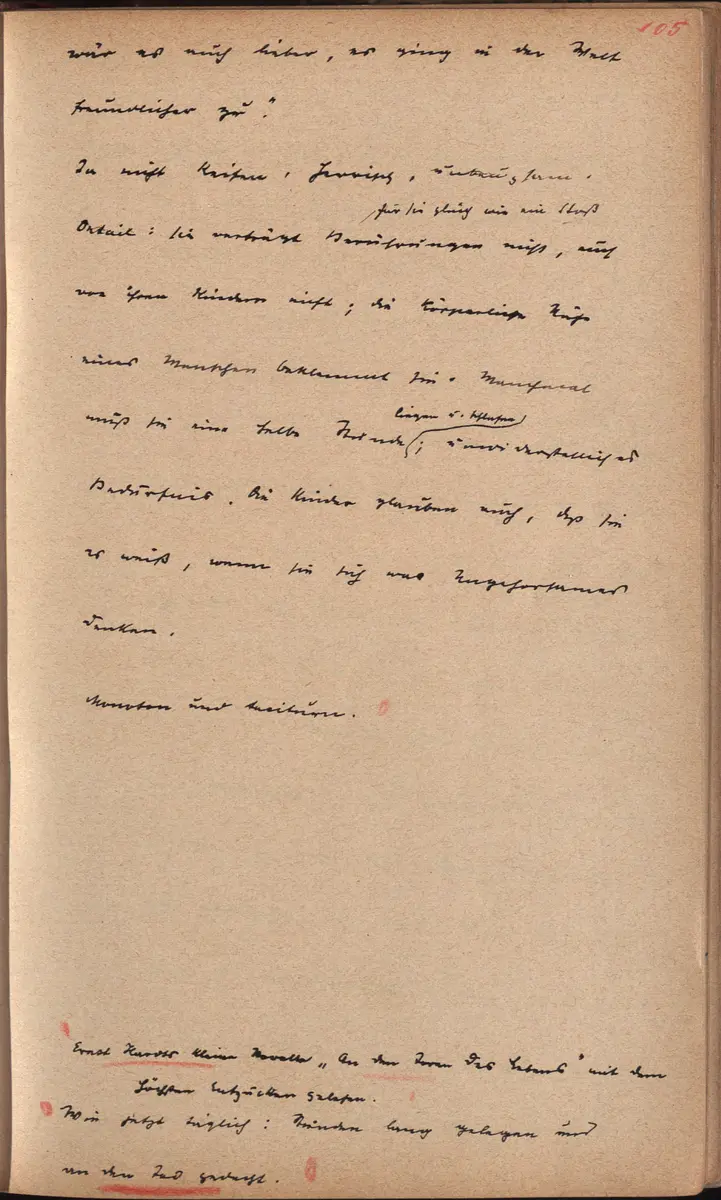 105
wär es auch lieber, es ging in der Welt
freundlicher zu."
Ja nicht keifen, herrisch, unbeugsam.
für sie gleich wie ein Stoß
Detail: sie verträgt Berührungen nicht, auch
von ihren Kindern nicht; die körperliche Nähe
eines Menschen beklemmt sie. Manchmal
liegen u. schlafen
muß sie eine halbe Stunde; unwiderstehliches
Bedürfnis. Die Kinder glauben auch, daß sie
es weiß, wenn sie sich was Ungehorsames
denken.
Monoton und taciturn.
Ernst Hardts kleine Novelle „An den Toren des Lebens" mit dem
höchsten Entzücken gelesen.
Wie jetzt täglich: Stunden lang gelegen und
an den Tod gedacht.